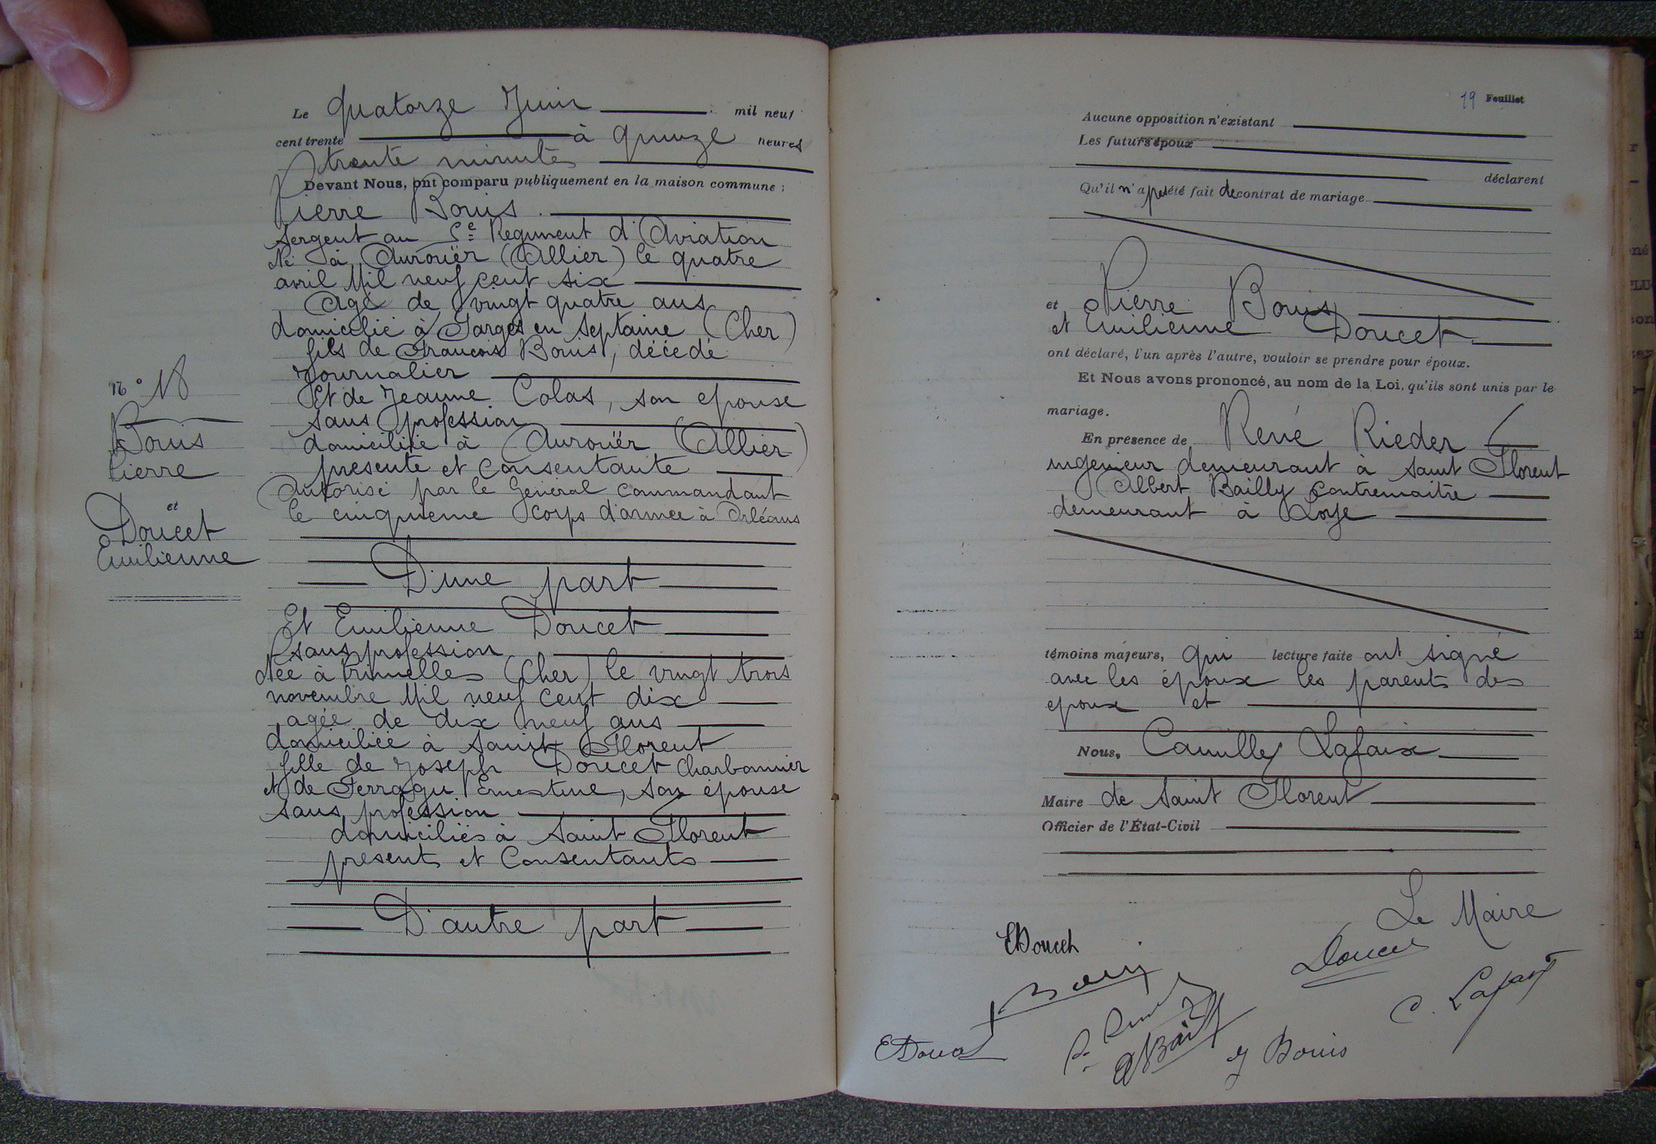 Le quatorze Juin mil neuf
cent trente à quinze heures
trente minutes
Devant Nous, ont comparu publiquement en la maison commune :
Pierre Bouis
sergent au Regiment d'Aviation
Né à Aurouër (Allier) le quatre
avril Mil neuf cent six
Agé de vingt quatre ans
domicilié à Farges en Septaine (Cher)
fils de François Bouis, décédé
Journalier
Et de Jeanne Colas, son epouse
sans profession
domiciliée à Aurouër (Allier)
présente et Consentante
Autorisé par le Général commandant
le cinquième Corps d'armée à Orléans
D'une part
Et Emilienne Doucet
sans profession
Née à (Cher) le vingt trois
novembre Mil neuf cent dix
agée de dix neuf ans
domiciliée à Saint Florent
fille de Joseph Doucet Charbonnier
et de Ferragu Ernestine, son épouse
sans profession
domiciliés à Saint Florent
présents et Consentants
D'autre part
N° 18
Bouis
Pierre
et
Doucet
Emilienne
19 Feuillet
Aucune opposition n'existant
Les futurs époux
déclarent
Qu'il n'a pas été fait de contrat de mariage
et Pierre Bouis
et Emilienne Doucet
ont déclaré, l'un après l'autre, vouloir se prendre pour époux.
Et Nous avons prononcé, au nom de la Loi, qu'ils sont unis par le
mariage.
En présence de René Rieder
ingénieur demeurant à Saint Florent
Albert Bailly Contremaitre
demeurant à Loye
témoins majeurs, qui lecture faite ont signé
avec les époux les parents des
epoux et
Nous, Camille Lafaix
Maire de Saint Florent
Officier de l'État-Civil
Le Maire
EDoucet
Bouis
Doucet
C. Lafaix
ABailly
J Bouis
EDoucet